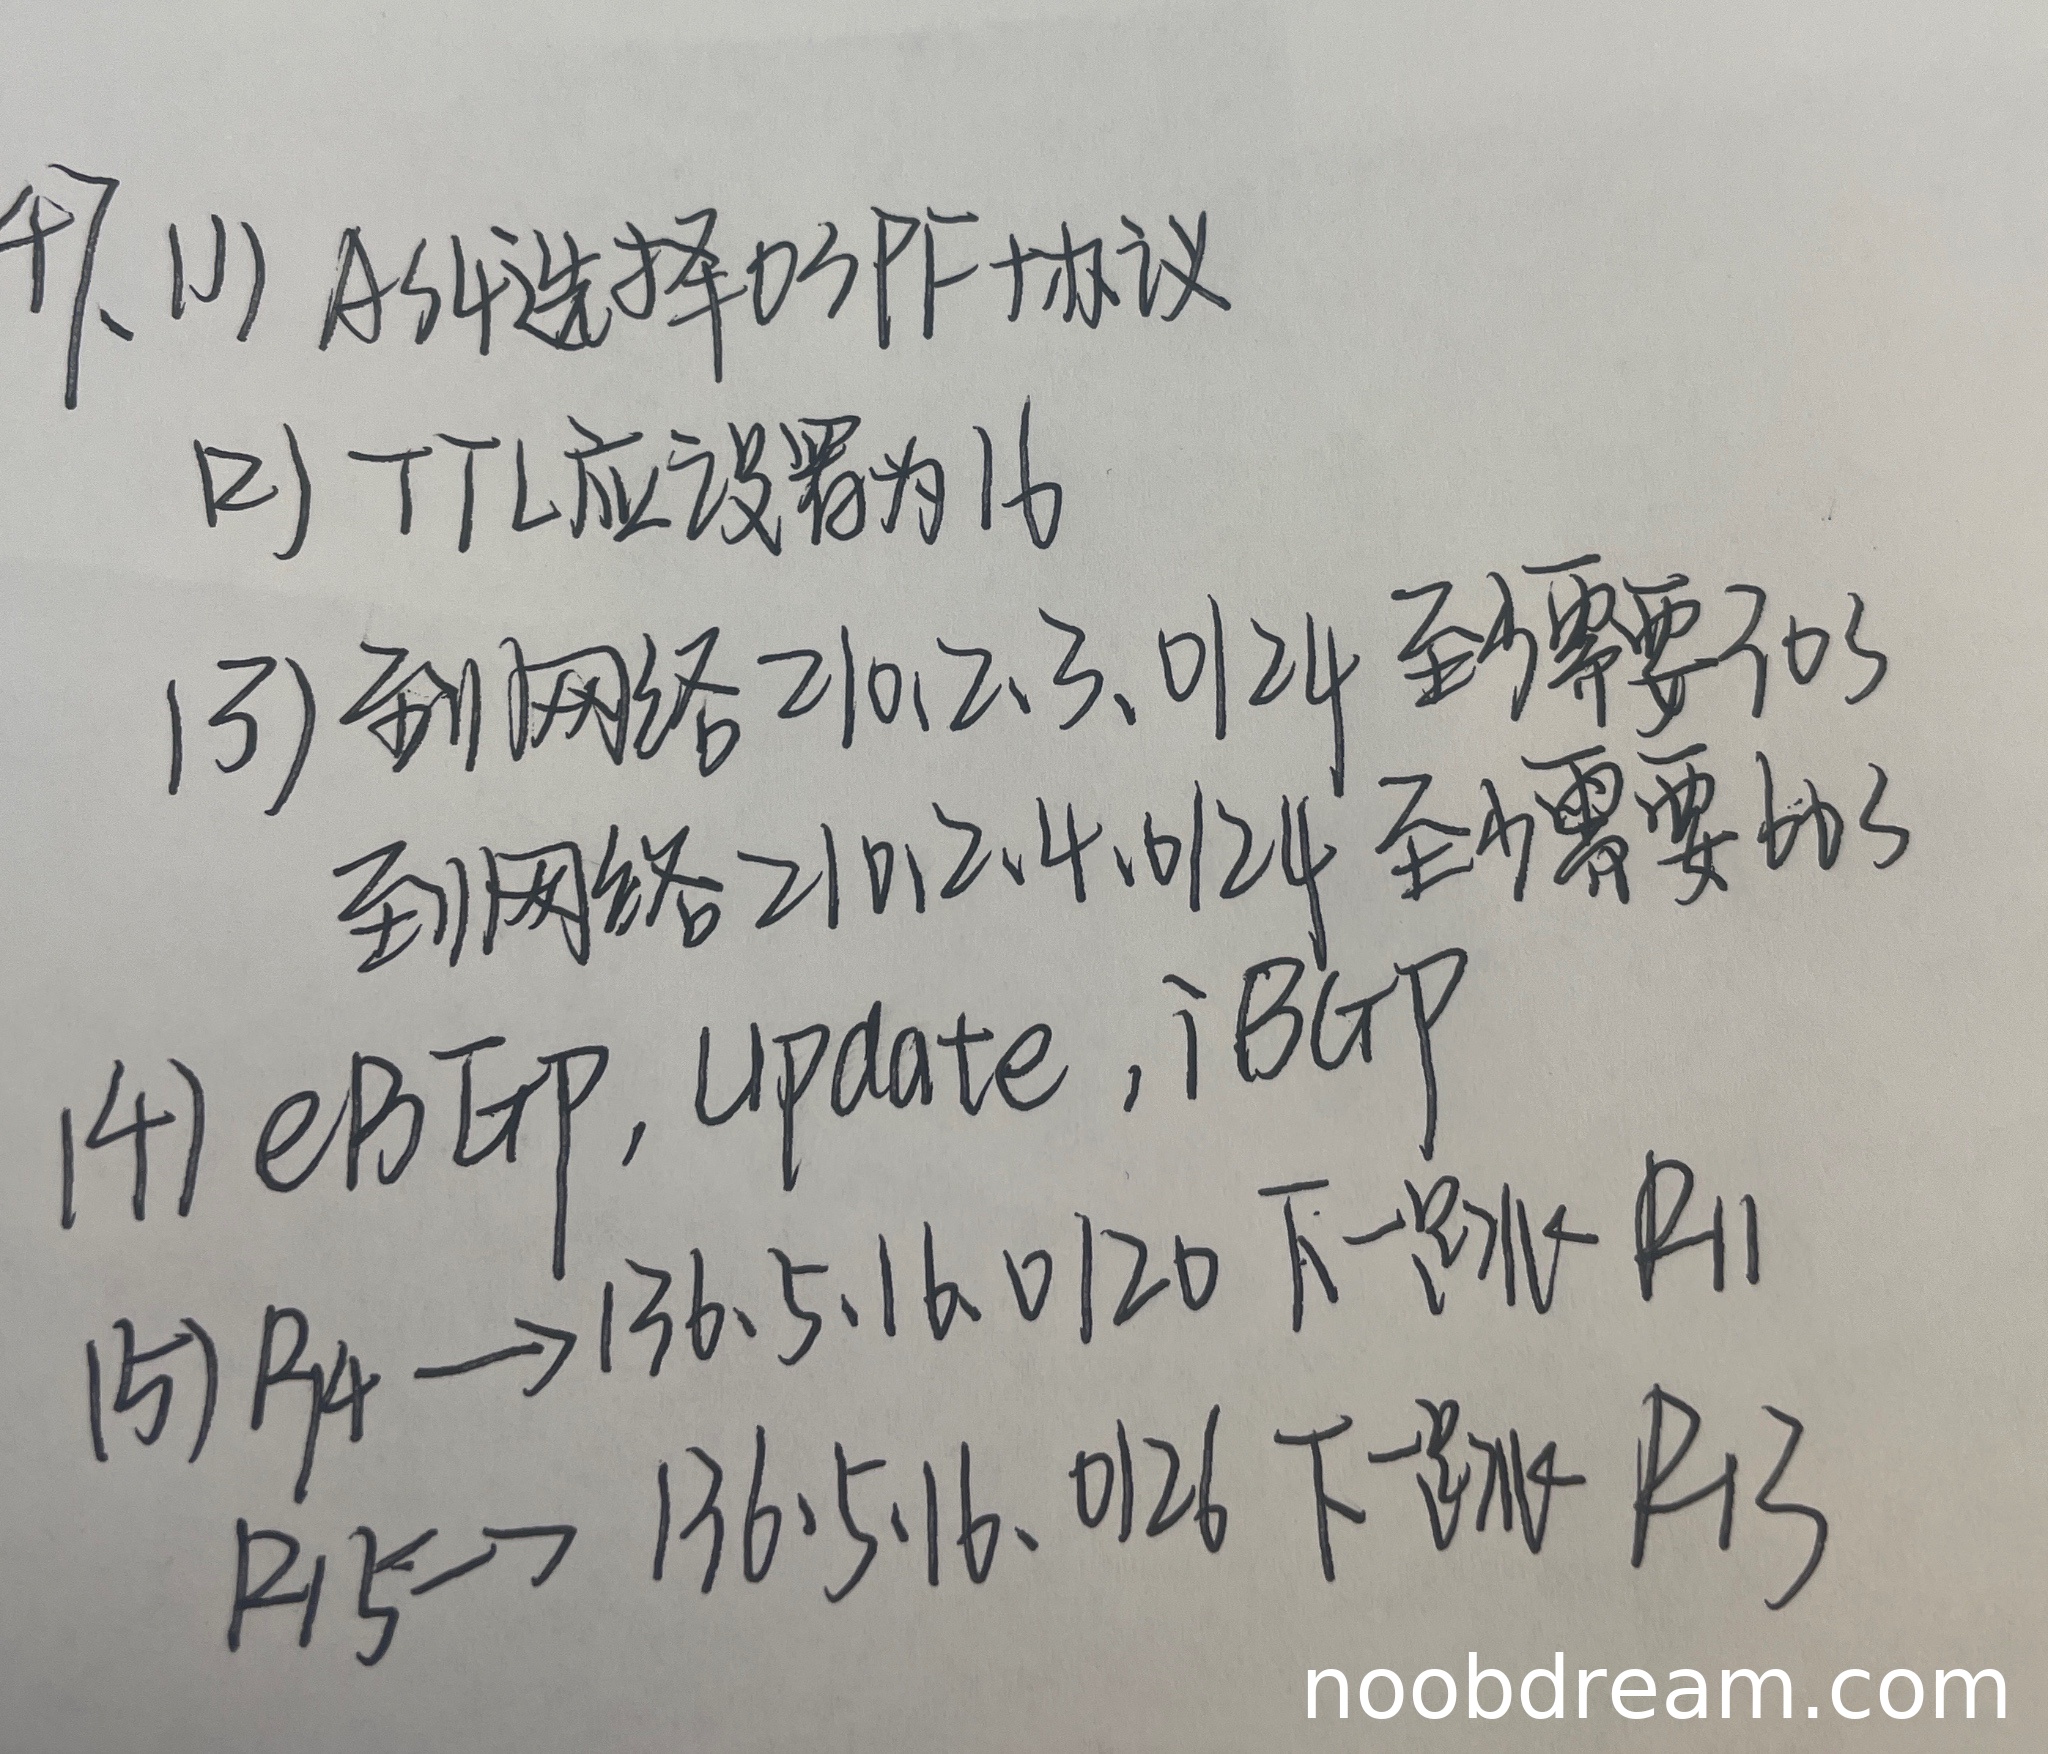 47、(1) AS4选择OSPF协议
(2) TTL应设置为16
(3) 到网络210.2.3.0/24至少需要30s
到网络210.2.4.0/24至少需要60s
(4) eBGP, Update, iBGP
(5) R14→136.5.16.0/20 下一跳 R11
R15→136.5.16.0/26 下一跳 R13
noobdream.com